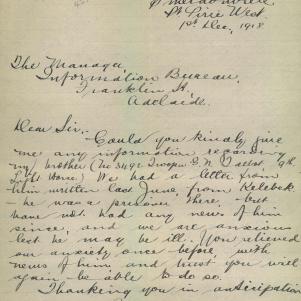 Pt Pirie West.
1st Dec, 1918
The Manager
Information Bureau,
Franklin St.
Adelaide.
Dear Sir,-
Could you kindly give
me any information regarding
my brother (No 3492 Trooper E. N. 9th
L. H. Horse) We had a letter from
him written last June, from Kelebek
- he was a prisoner there, - but
have not had any news of him
since, and we are anxious
lest he may be ill. You relieved
our anxiety once before with
news of him, and trust you will
again be able to do so.
Thanking you in anticipation